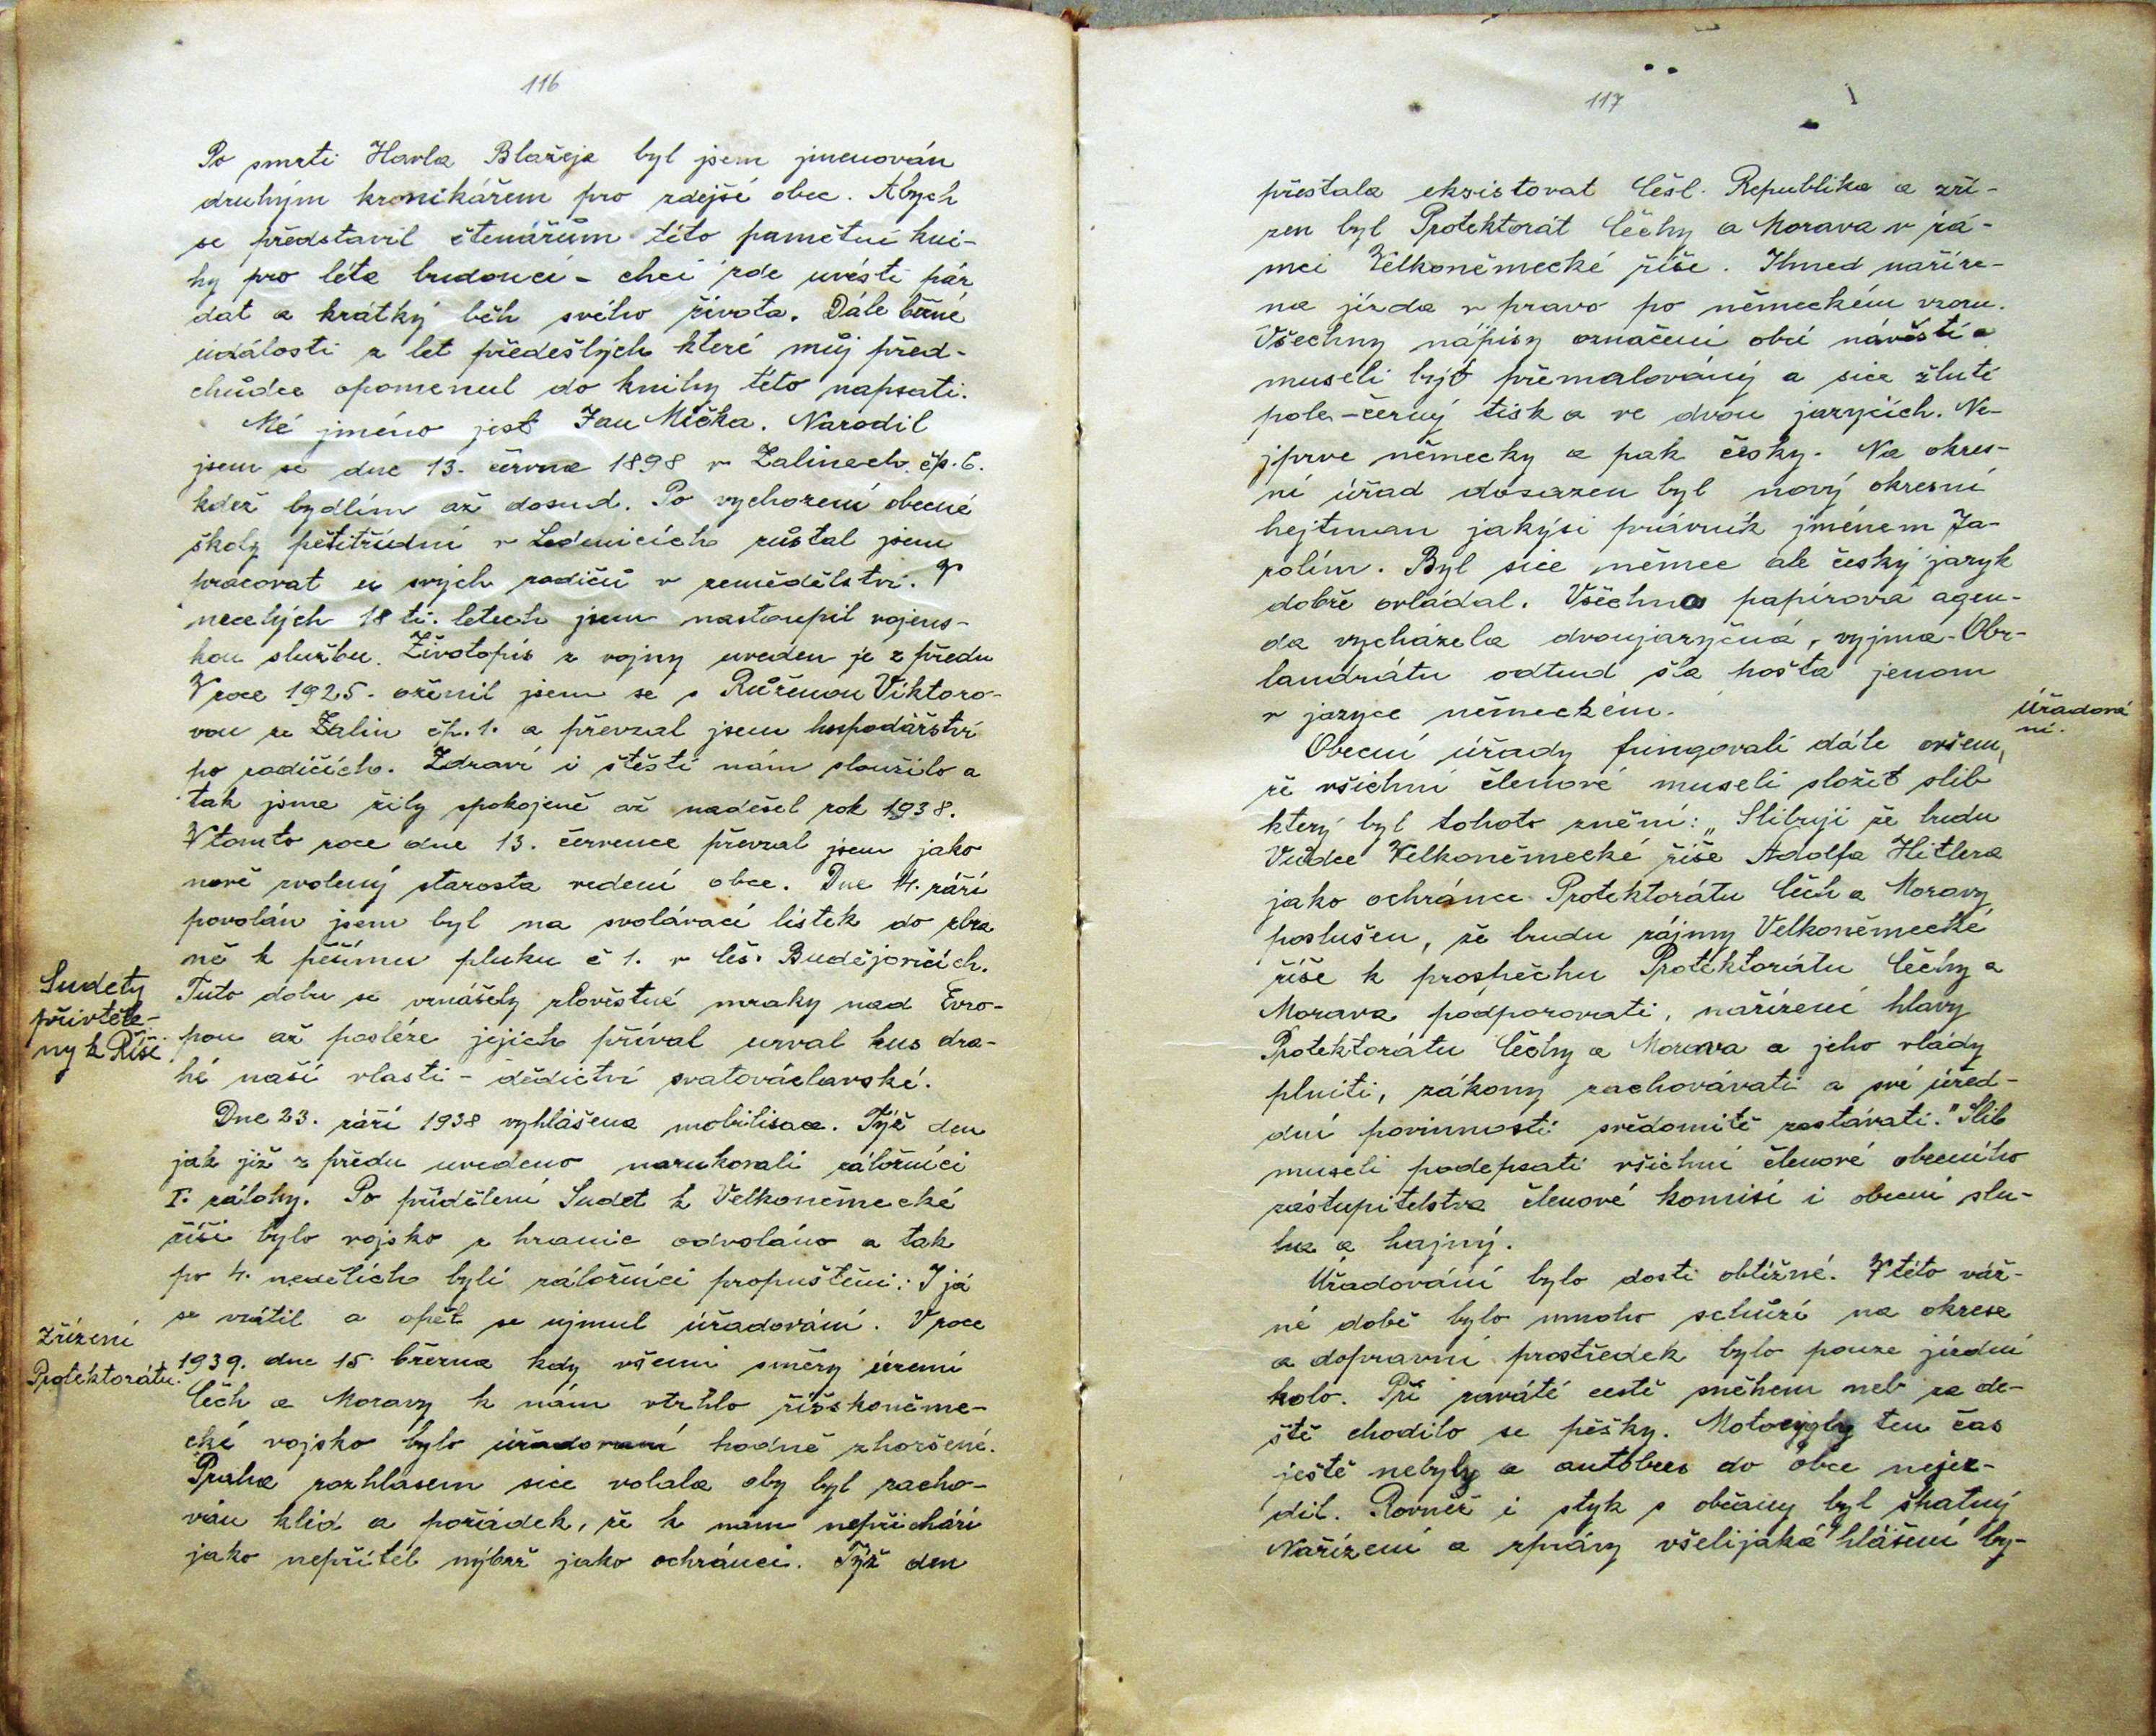 116
Po smrti Havla Blažeje byl jsem jmenován
druhým kronikářem pro zdejší obec. Abych
se představil čtenářům této pamětní kni-
hy pro léta budoucí - chci zde uvésti pár
dat a krátký běh svého života. Dále běžné
události z let předešlých které můj před-
chůdce opomenul do knihy této napsati.
Mé jméno jest Jan Mička. Narodil
jsem se dne 13. června 1898 v Zalinech čp. 6.
kdež bydlím až dosud. Po vychození obecné
školy pětitřídní v Ledenicích zůstal jsem
pracovat u svých rodičů v zemědělství. V
necelých 18 ti. letech jsem nastoupil vojens-
kou službu. Životopis z vojny uveden je z předu
V roce 1925. oženil jsem se s Růženou Viktoro-
vou ze Zalin čp. 1. a převzal jsem hospodářství
po rodičích. Zdraví i štěstí nám sloužilo a
tak jsme žily spokojeně až nadešel rok 1938.
V tomto roce dne 13. července převzal jsem jako
nově zvolený starosta vedení obce. Dne 4. září
povolán jsem byl na svolávací lístek do zbra
ně k pěšímu pluku č 1. v Čes. Budějovicích.
Sudety
přivtěle-
ny k Říši.
Tuto dobu se vznášely zlověstné mraky nad Evro-
pou až posléze jejich příval urval kus dra-
hé naší vlasti - dědictví svatováclavské.
Dne 23. září 1938 vyhlášena mobilisace. Týž den
jak již z předu uvedeno narukovali záložníci
I. zálohy. Po přidělení Sudet k Velkoněmecké
říši bylo vojsko z hranic odvoláno a tak
po 4. nedělích byli záložníci propuštěni: I já
se vrátil a opět se ujmul úřadování. V roce
Zřízení
Protektorátu.
1939. dne 15. března kdy všemi směry území
Čech a Moravy k nám vtrhlo říšskoněme-
cké vojsko bylo úřadovaní hodně zhoršené.
Praha rozhlasem sice volala aby byl zacho-
ván klid a pořádek, že k nám nepřichází
jako nepřítel nýbrž jako ochránci. Týž den
117
přestala eksistovat Česl. Republika a zří-
zen byl Protektorát Čechy a Morava v rá-
mci Velkoněmecké říše. Ihned naříze-
na jízda v pravo po německém vzoru.
Všechny nápisy označení obcí návěstí a
museli být přemalovány a sice žluté
pole - černý tisk a ve dvou jazycích. Ne-
jprve německy a pak česky. Na okres-
ní úřad dosazen byl nový okresní
hejtman jakýsi právník jménem Ja-
rolím. Byl sice němec ale český jazyk
dobře ovládal. Všechna papírová agen-
da vycházela dvoujazyčná, vyjma - Obr-
landrátu odtud šla pošta jenom
v jazyce německém.
Úřadová
ní.
Obecní úřady fungovali dále ovšem,
že všichni členové museli složit slib
který byl tohoto znění: „Slibuji že budu
Vůdce Velkoněmecké říše Adolfa Hitlera
jako ochránce Protektorátu Čech a Moravy
poslušen, že budu zájmy Velkoněmecké
říše k prospěchu Protektorátu Čechy a
Morava podporovati, nařízení hlavy
Protektorátu Čechy a Morava a jeho vlády
plniti, zákony zachovávati a své úřed-
dní povinnosti svědomitě zastávati." Slib
museli podepsati všichni členové obecního
zastupitelstva členové komisí i obecní slu-
ha a hajný.
Úřadování bylo dosti obtížné. V této váž-
né době bylo mnoho schůzí na okrese
a dopravní prostředek bylo pouze jízdní
kolo. Při zaváté cestě sněhem neb za de-
ště chodilo se pěšky. Motocygly ten čas
ještě nebyly a autobus do obce nejez-
dil. Rovněž i styk s občany byl špatný
Nařízení a zprávy všelijaká hlášení by-